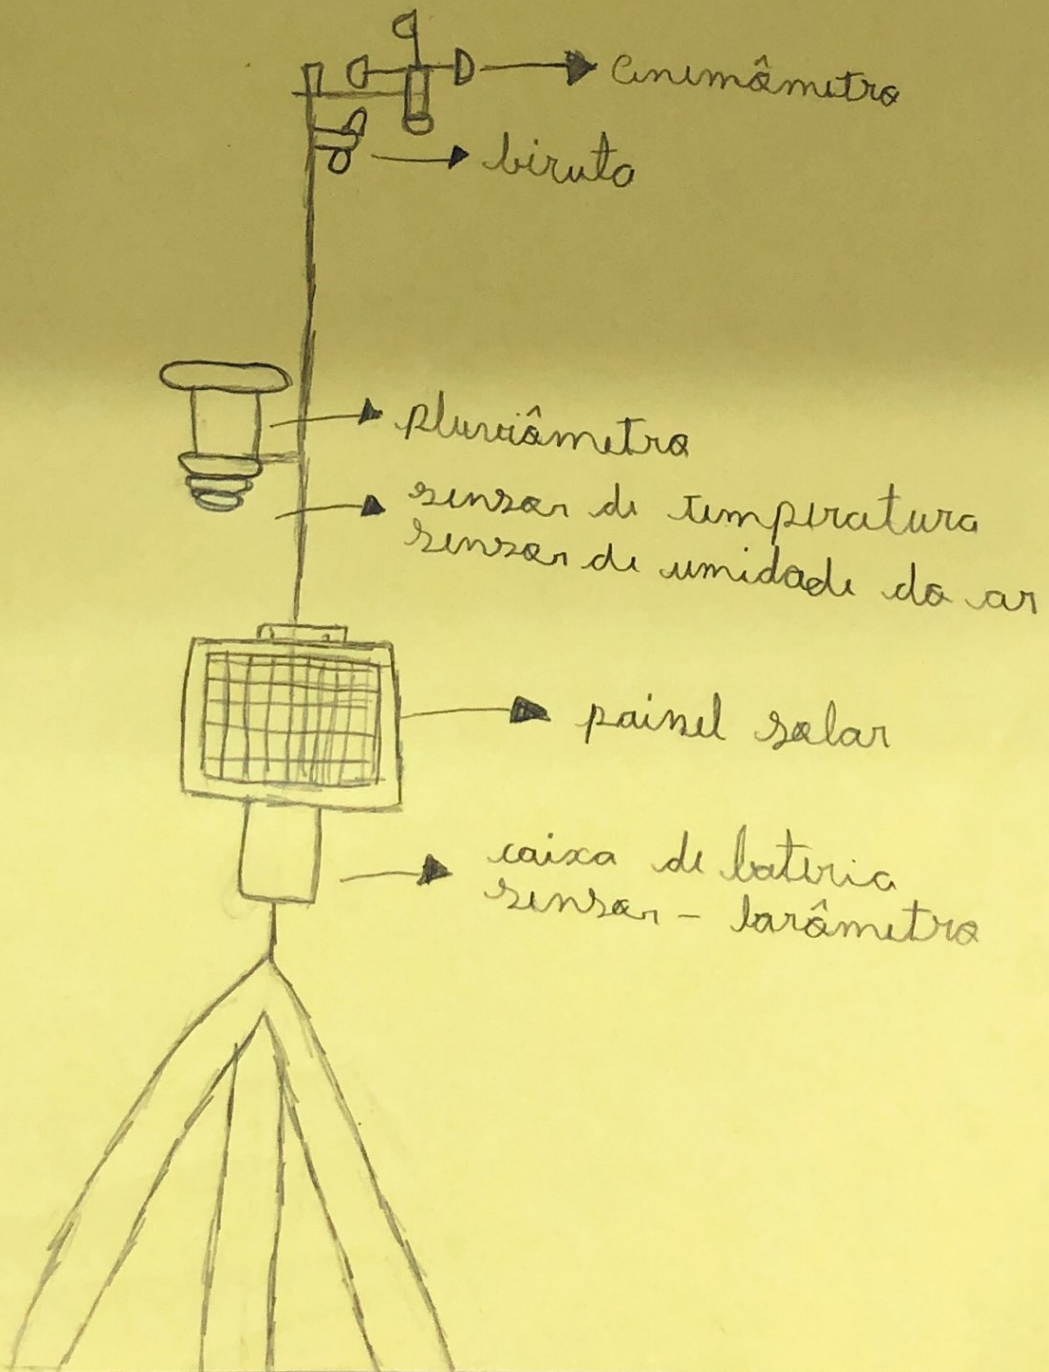 Anemâmetro
biruta
pluviâmetro
sensor de temperatura
sensor de umidade do ar
painel solar
caixa de bateria
sensor - barâmetro